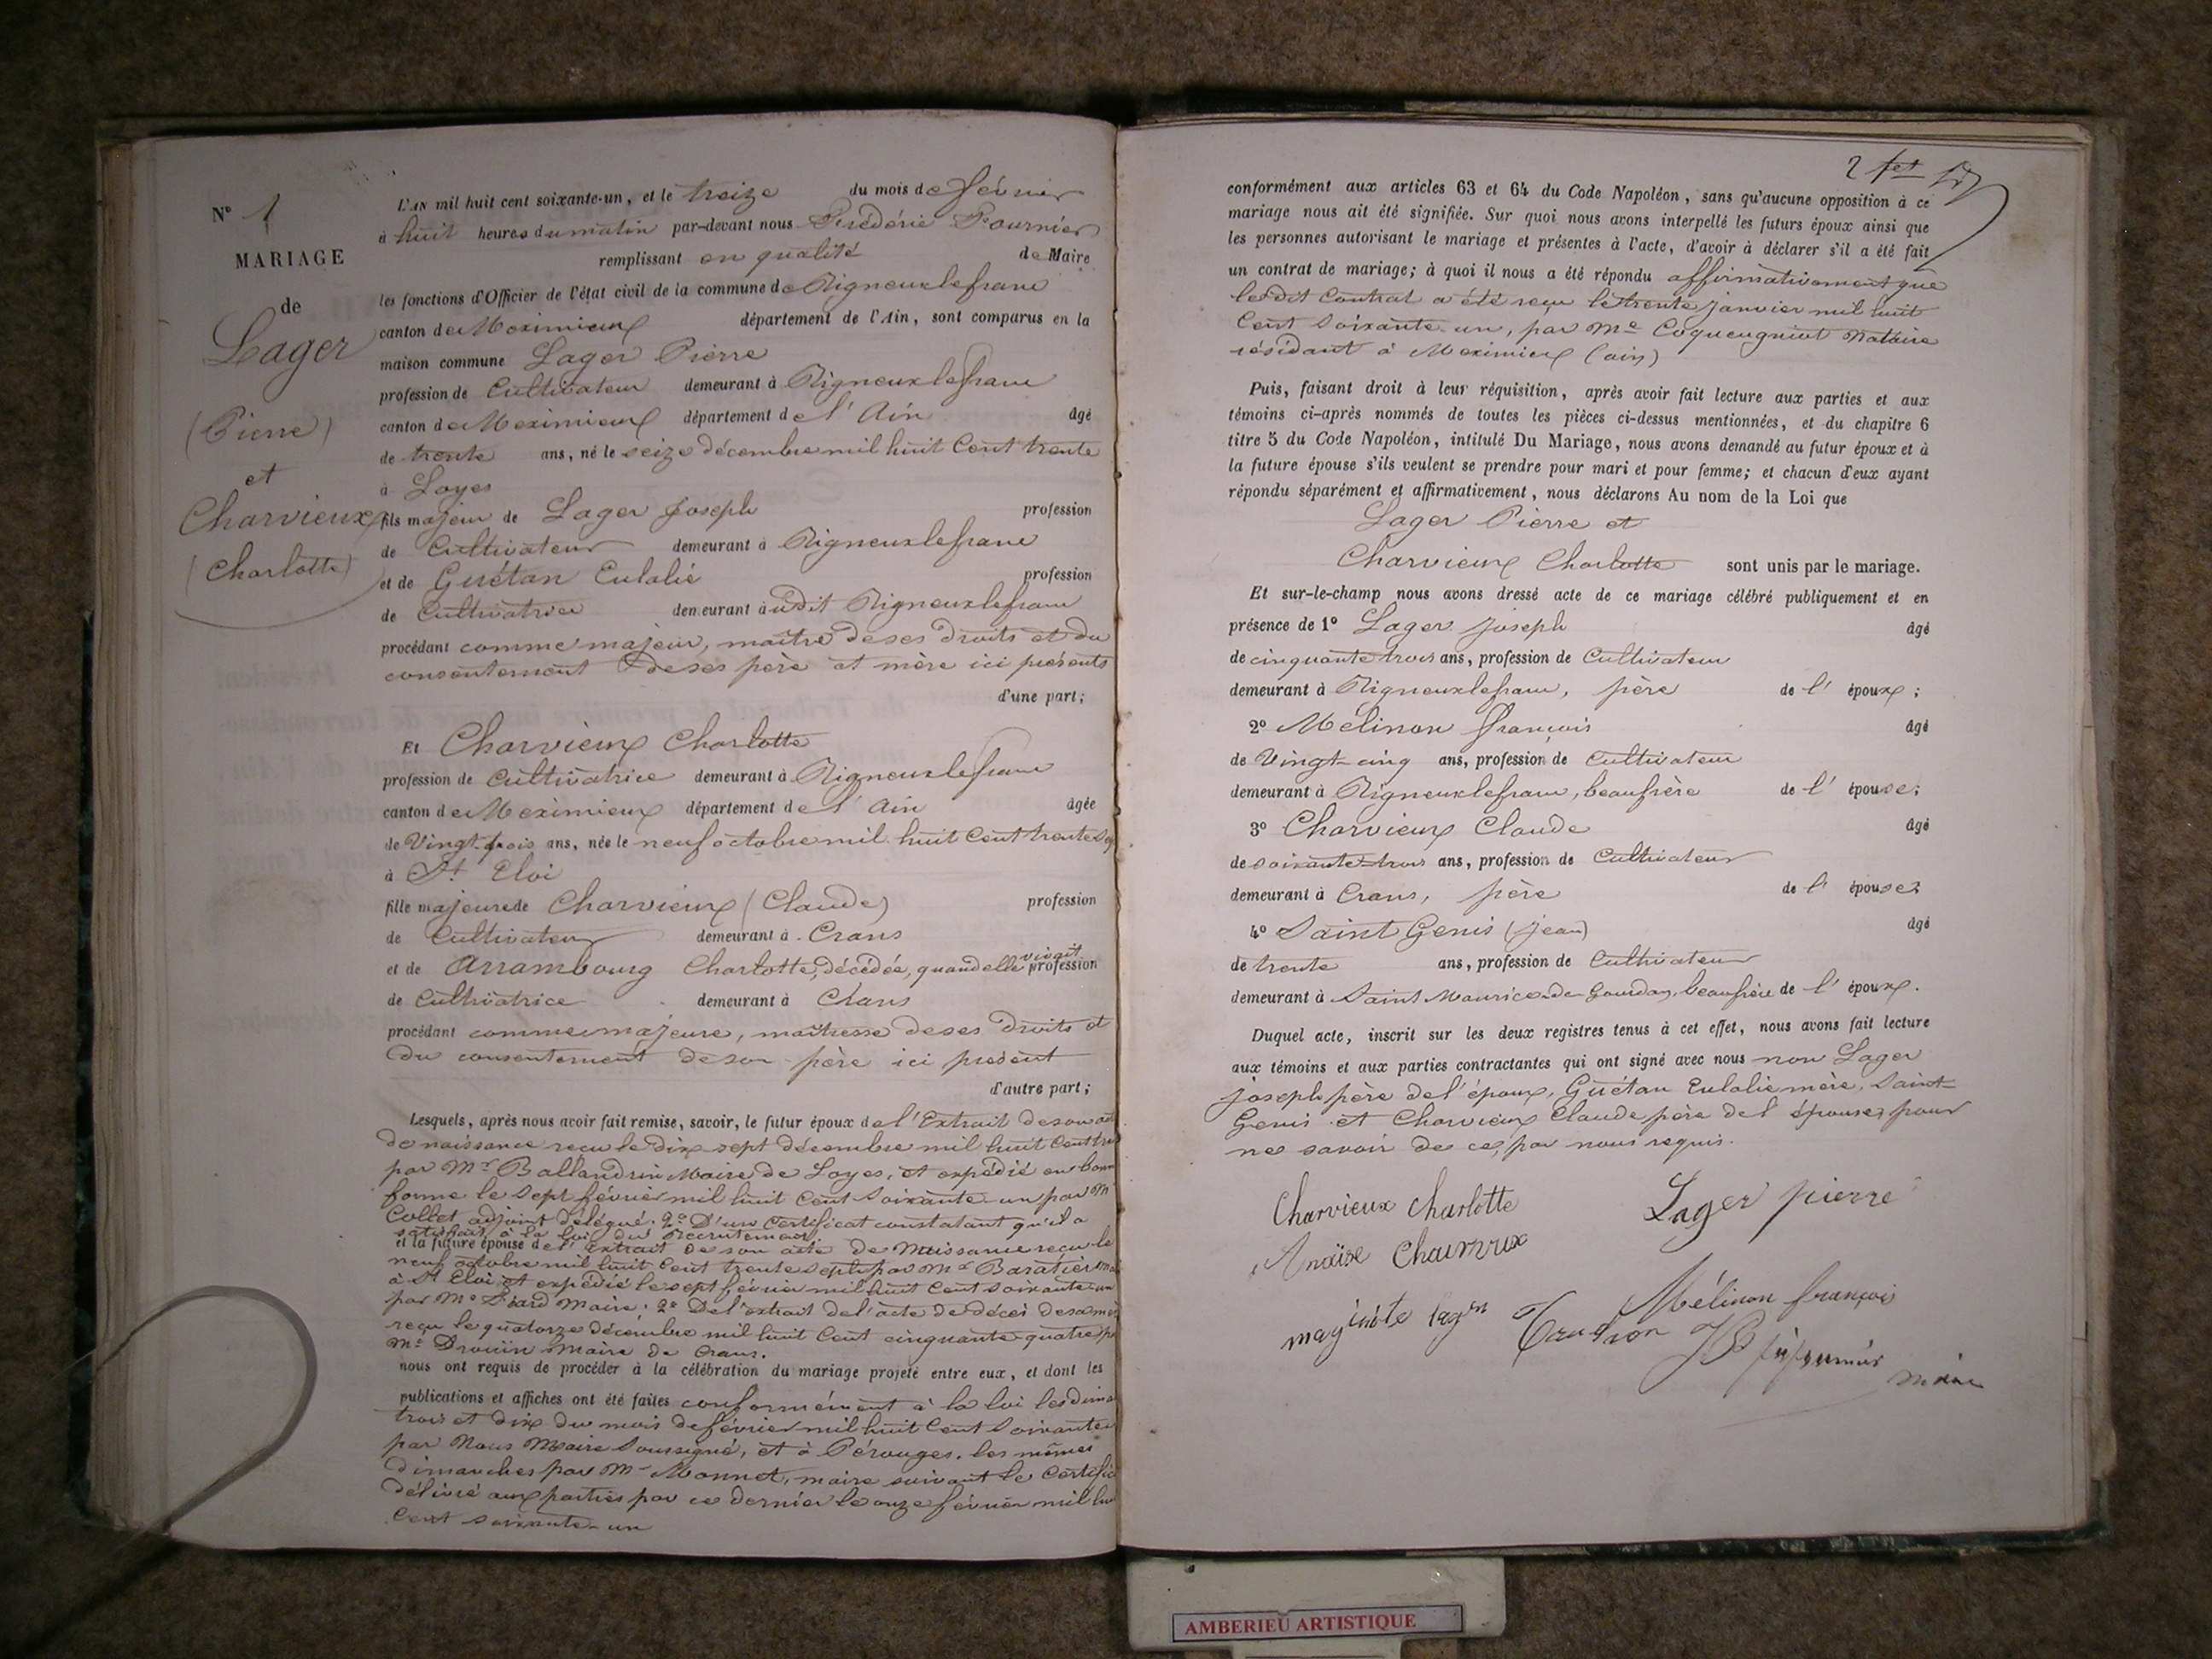 N° 1
MARIAGE
de
Lager
(Pierre)
et
Charvieux
(Charlotte)
L'AN mil huit cent soixante-un, et le treize du mois de février
à huit heures du matin par-devant nous Frédéric Fournier
remplissant en qualité de Maire
les fonctions d'Officier de l'état civil de la commune de Rigneuxlefranc
canton de Meximieux département de l'Ain, sont comparus en la
maison commune Lager Pierre
profession de Cultivateur demeurant à Rigneuxlefranc
canton de Meximieux département de l'Ain âgé
de trente ans, né le seize décembre mil huit Cent trente
à Loyes
fils majeur de Lager Joseph profession
de Cultivateur demeurant à Rigneuxlefranc
et de Guétan Eulalie profession
de Cultivatrice demeurant à udit Rigneuxlefranc
procédant comme majeur, maître de ses droits et du
consentement de ses père et mère ici présents
d'une part;
Et Charvieux Charlotte
profession de Cultivatrice demeurant à Rigneuxlefranc
canton de Meximieux département de l'Ain âgée
de Vingt-trois ans, née le neuf octobre mil huit Cent trente sep
à St Eloi
fille majeure de Charvieux (Claude) profession
de Cultivateur demeurant à Crans
et de Arrambourg Charlotte, décédée, quand elle vivait profession
de Cultivatrice demeurant à Crans
procédant comme majeure, maîtresse de ses droits et
du consentement de son père ici présent
d'autre part;
Lesquels, après nous avoir fait remise, savoir, le futur époux de l'Extrait de son act
de naissance reçu le dix sept décembre mil huit Cent tre
par Mr Ballandrin Maire de Loyes, et expédié en bonn
forme le sept février mil huit Cent soixante-un par M
Collet adjoint délégué. 2° D'un certificat constatant qu'il a
satisfait à la loi du Recrutement
et la future épouse de l'Extrait de son acte de Naissance reçu le
neuf octobre mil huit Cent trente sept par Mr Baratier ma
à St Eloi et expédié le sept février mil huit Cent soixante-un
par Mr maire: 2° De l'extrait de l'acte de décès de sa mèr
reçu le quatorze décembre mil huit Cent cinquante quatre p
Mr Drouin Maire de Crans.
nous ont requis de procéder à la célébration du mariage projeté entre eux, et dont les
publications et affiches ont été faites conformément à la loi les dima
trois et dix du mois de février mil huit Cent soixante
par Nous Maire soussigné, et à Pérouges, les mêmes
dimanches par Mr Monnet, maire suivant le Certific
délivré aux parties par ce dernier le onze février mil hu
Cent soixante-un
2 fet
conformément aux articles 63 et 64 du Code Napoléon, sans qu'aucune opposition à ce
mariage nous ait été signifiée. Sur quoi nous avons interpellé les futurs époux ainsi que
les personnes autorisant le mariage et présentes à l'acte, d'avoir à déclarer s'il a été fait
un contrat de mariage; à quoi il nous a été répondu affirmativement que
ledit Contrat a été reçu le trente janvier mil huit
Cent soixante-un, par Me Coqueugniot Notaire
résidant à Meximieux (ain)
Puis, faisant droit à leur réquisition, après avoir fait lecture aux parties et aux
témoins ci-après nommés de toutes les pièces ci-dessus mentionnées, et du chapitre 6
titre 5 du Code Napoléon, intitulé Du Mariage, nous avons demandé au futur époux et à
la future épouse s'ils veulent se prendre pour mari et pour femme; et chacun d'eux ayant
répondu séparément et affirmativement, nous déclarons Au nom de la Loi que
Lager Pierre et
Charvieux Charlotte sont unis par le mariage.
Et sur-le-champ nous avons dressé acte de ce mariage célébré publiquement et en
présence de 1° Lager Joseph âgé
de cinquante trois ans, profession de Cultivateur
demeurant à Rigneuxlefranc, père de l'époux;
2° Mélinon françois âgé
de Vingt-cinq ans, profession de Cultivateur
demeurant à Rigneuxlefranc, beaufrère de l'épouse;
3° Charvieux Claude âgé
de soixante-trois ans, profession de Cultivateur
demeurant à Crans, père de l'épouse;
4° Saint Genis (jean) âgé
de trente ans, profession de Cultivateur
demeurant à Saint Maurice de Gourdan, beaufrère de l'époux.
Duquel acte, inscrit sur les deux registres tenus à cet effet, nous avons fait lecture
aux témoins et aux parties contractantes qui ont signé avec nous non Lager
joseph père de l'époux, Guétan Eulalie mère, Saint
Genis et Charvieux Claude père de l'épouse, pour
ne savoir de ce, par nous requis.
Charvieux Charlotte Lager pierre
Anaïse Charvieux
Mélinon françois
maire
AMBERIEU ARTISTIQUE